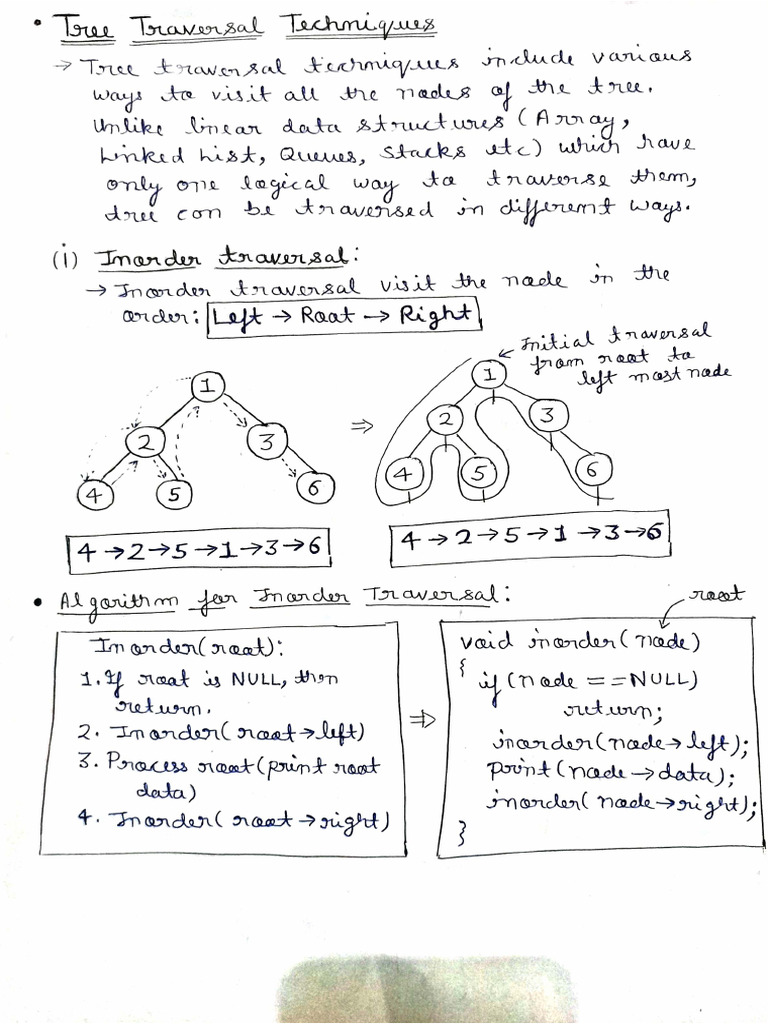 • Tree Traversal Techniques
→ Tree traversal techniques include various
ways to visit all the nodes of the tree.
Unlike linear data structures (Array,
Linked List, Queues, Stacks etc) which have
only one logical way to traverse them,
tree can be traversed in different ways.
(i) Inorder traversal:
→ Inorder traversal visit the node in the
order: Left → Root → Right
Initial traversal
from root to
left most node
1
2
3
4
5
6
⇒
1
2
3
4
5
6
4 → 2 → 5 → 1 → 3 → 6
4 → 2 → 5 → 1 → 3 → 6
• Algorithm for Inorder Traversal:
root
Inorder(root):
1. If root is NULL, then
return.
2. Inorder(root→left)
3. Process root(print root
data)
4. Inorder(root→right)
⇒
void inorder(node)
{
if(node ==NULL)
return;
inorder(node→left);
print(node→data);
inorder(node→right);
}